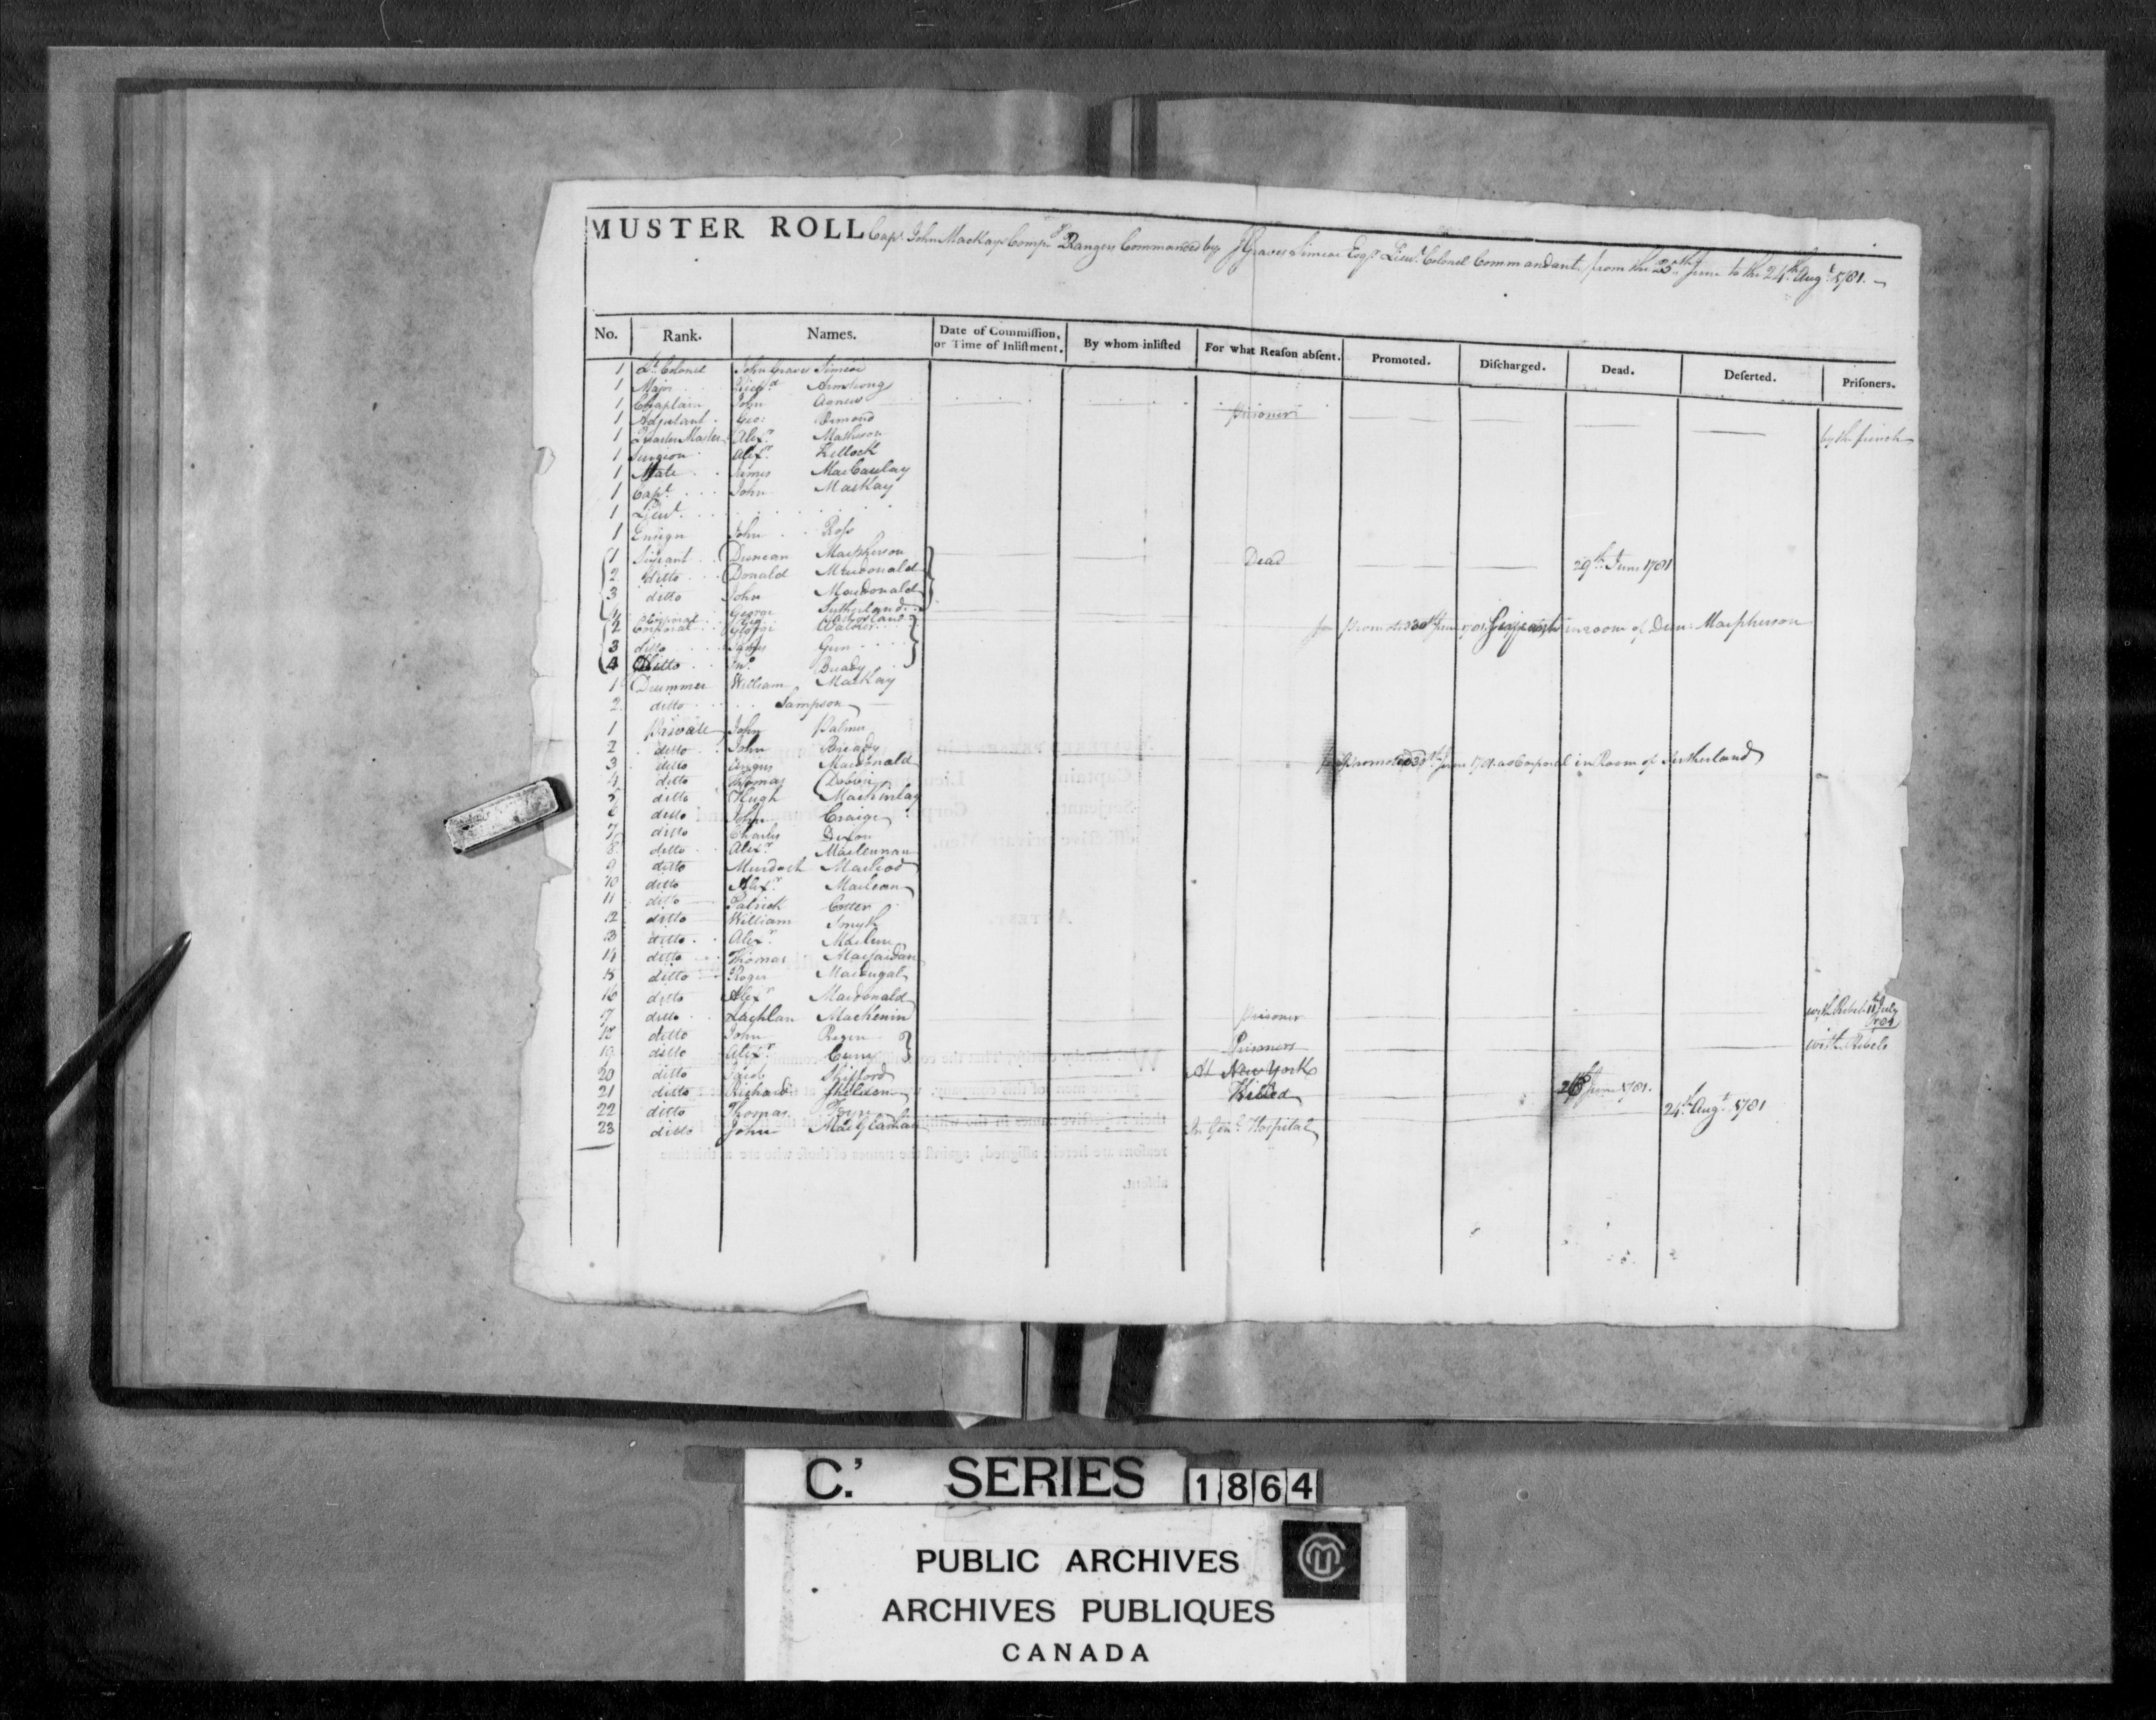 MUSTER ROLL Capt. John MacKays Compy Rangers Commanded by J Graves Simcoe Esqr. Lieut. Colonel Commandant, from the 25th June to the 24th Augt. 1781.
No. Rank. Names. Date of Commiſſion, or Time of Inliſtment. By whom inliſted For what Reaſon abſent. Promoted. Diſcharged. Dead. Deſerted. Priſoners.
1 Lt. Colonel John Graves Simcoe
1 Major Richd Armstrong
1 Chaplain John Agnew prisoner by the french
1 Adjutant Geo: Ormond
1 Quarter Master Alexr. Matheson
1 Surgeon Alexr. Kellock
1 Mate James MacCaulay
1 Capt. John MacKay
1 Lieut.
1 Ensign John Ross
1 Sergeant Duncan Macpherson Dead 29th June 1781
2 ditto Donald Macdonald
3 ditto John Macdonald
1 Corporal George Sutherland promoted 30th June 1781 in room of Dun: Macpherson
2 Corporal George Walker
3 ditto James Gun
4 Ditto Jno. Bready
1 Drummer William MacKay
2 ditto Sampson
1 Private John Palmer
2 ditto John Bready promoted 30th June 1781 as Corporal in Room of Sutherland
3 ditto Angus Macdonald
4 ditto Thomas
5 ditto Hugh MacKinlay
6 ditto John Craige
7 ditto Charles Dixon
8 ditto Alexr. Maclennan
9 ditto Murdoch Macleod
10 ditto Alexr. Maclean
11 ditto Patrick
12 ditto William Smyth
13 ditto Alexr.
14 ditto Thomas
15 ditto Roger Macdugal
16 ditto Alexr. Macdonald
17 ditto Lachlan MacKenin prisoner with Rebels 11th July
18 ditto John Regen
19 ditto Alexr. Curry Prisoners with Rebels
20 ditto Jacob At New York
21 ditto Richard Shelden Killed 26th June 1781.
22 ditto Thomas 24th Augt. 1781
23 ditto John In Genl. Hospital
C.' SERIES 1864
PUBLIC ARCHIVES
ARCHIVES PUBLIQUES
CANADA